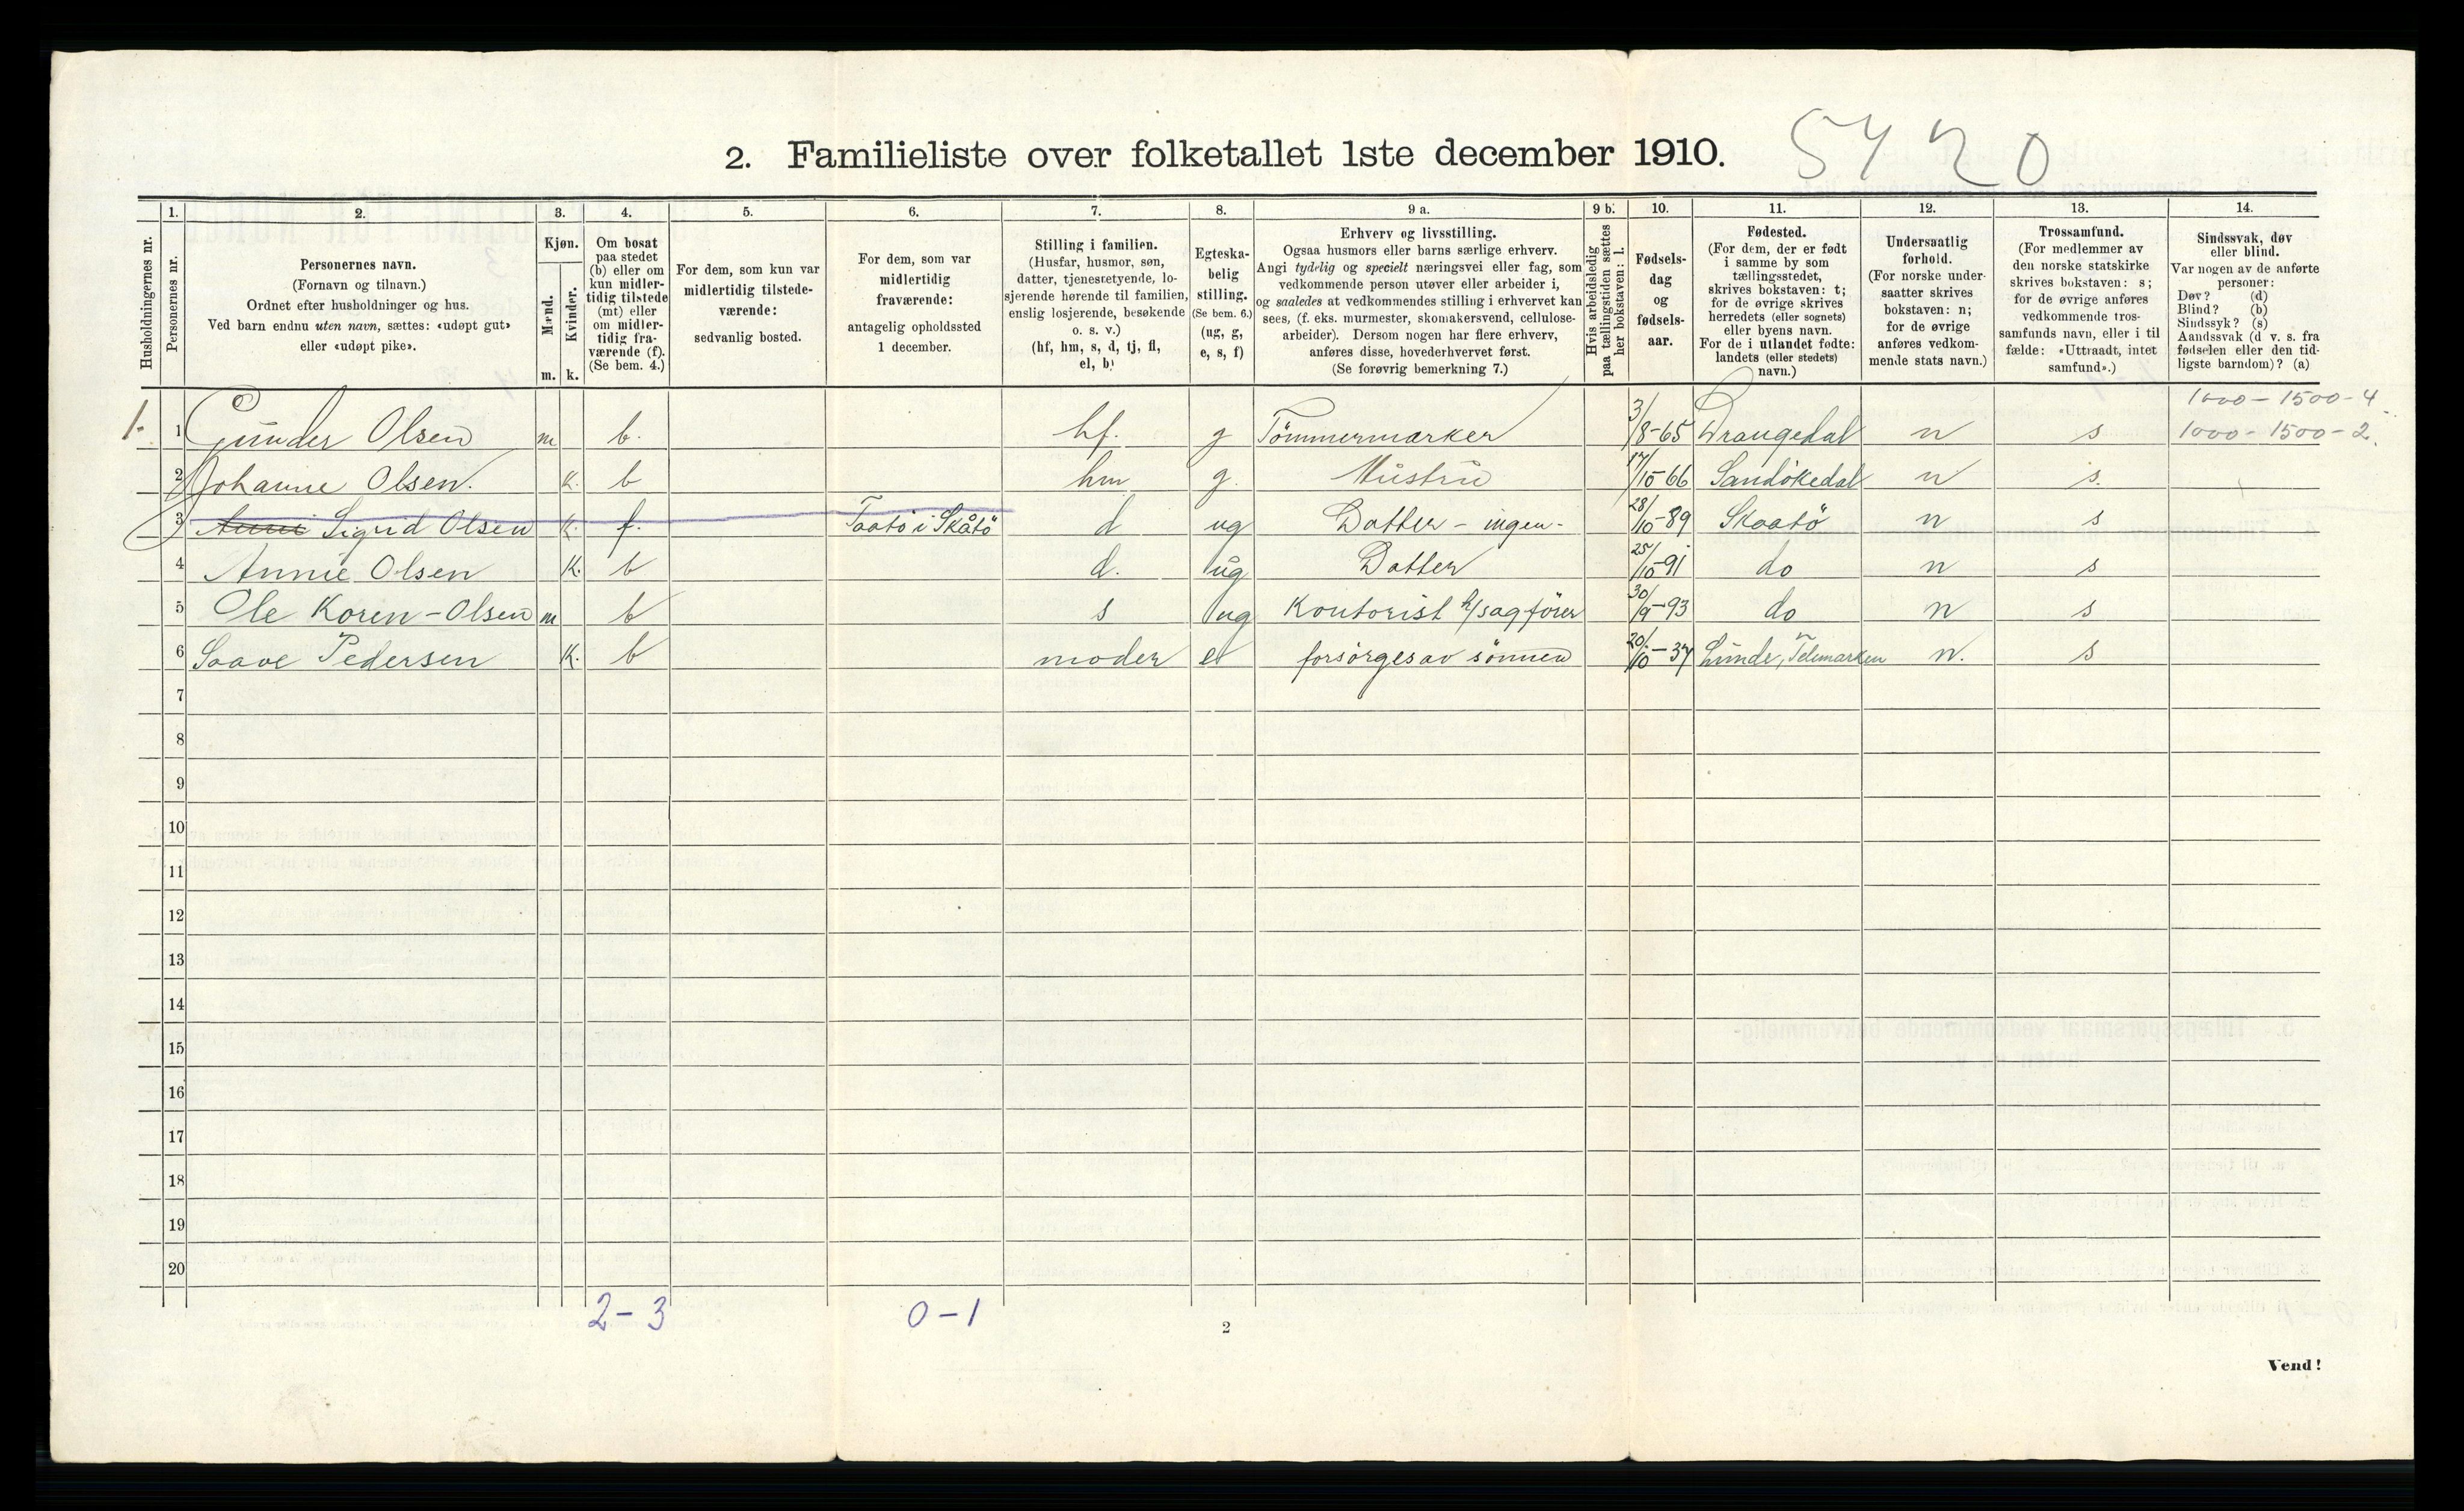 5420
2. Familieliste over folketallet 1ste december 1910.
Husholdningernes nr.
1.
Personernes nr.
2.
Personernes navn.
(Fornavn og tilnavn.)
Ordnet efter husholdninger og hus.
Ved barn endnu uten navn, sættes: «udøpt gut»
eller «udøpt pike».
3.
Kjøn.
Mænd.
Kvinder.
m. k.
4.
Om bosat
paa stedet
(b) eller om
kun midler-
tidig tilstede
(mt) eller
om midler-
tidig fra-
værende (f).
(Se bem. 4.)
5.
For dem, som kun var
midlertidig tilstede-
værende:
sedvanlig bosted.
6.
For dem, som var
midlertidig
fraværende:
antagelig opholdssted
1 december.
7.
Stilling i familien.
(Husfar, husmor, søn,
datter, tjenestetyende, lo-
sjerende hørende til familien,
enslig losjerende, besøkende
o. s. v.)
(hf, hm, s, d, tj, fl,
el, b)
8.
Egteska-
belig
stilling.
(Se bem. 6.)
(ug, g,
e, s, f)
9 a.
Erhverv og livsstilling.
Ogsaa husmors eller barns særlige erhverv.
Angi tydelig og specielt næringsvei eller fag, som
vedkommende person utøver eller arbeider i,
og saaledes at vedkommendes stilling i erhvervet kan
sees, (f. eks. murmester, skomakersvend, cellulose-
arbeider). Dersom nogen har flere erhverv,
anføres disse, hovederhvervet først.
(Se forøvrig bemerkning 7.)
9 b.
Hvis arbeidsledig
paa tællingstiden sættes
her bokstaven: l.
10.
Fødsels-
dag
og
fødsels-
aar.
11.
Fødested.
(For dem, der er født
i samme by som
tællingsstedet,
skrives bokstaven: t;
for de øvrige skrives
herredets (eller sognets)
eller byens navn.
For de i utlandet fødte:
landets (eller stedets)
navn.)
12.
Undersaatlig
forhold.
(For norske under-
saatter skrives
bokstaven: n;
for de øvrige
anføres vedkom-
mende stats navn.)
13.
Trossamfund.
(For medlemmer av
den norske statskirke
skrives bokstaven: s;
for de øvrige anføres
vedkommende tros-
samfunds navn, eller i til
fælde: «Uttraadt, intet
samfund».)
14.
Sindssvak, døv
eller blind.
Var nogen av de anførte
personer:
Døv? (d)
Blind? (b)
Sindssyk? (s)
Aandssvak (d v. s. fra
fødselen eller den tid-
ligste barndom)? (a)
1000 - 1500 - 4
1. 1 Gunder Olsen m b. hf. g Tömmermærker 3/8-65 Drangedal n s 1000 - 1500 - 2.
2 Johanne Olsen. K. b hm g. Hustru 17/10 66 Sandökedal n s.
3 Sigrid Olsen K. f. Taatö i Skåtö d ug Datter - ingen - 28/10-89 Skaatö n s
4 Annie Olsen K. b d. ug Datter 25/10-91 do n s
5 Ole Koren-Olsen m b s ug Kontorist h/sagförer 30/9-93 do n s
6 Saave Pedersen K. b moder e forsörges av sönnen 20/10-37 Lunde, Telemarken n. s
7
8
9
10
11
12
13
14
15
16
17
18
19
20
2 - 3 0 - 1
2
Vend!